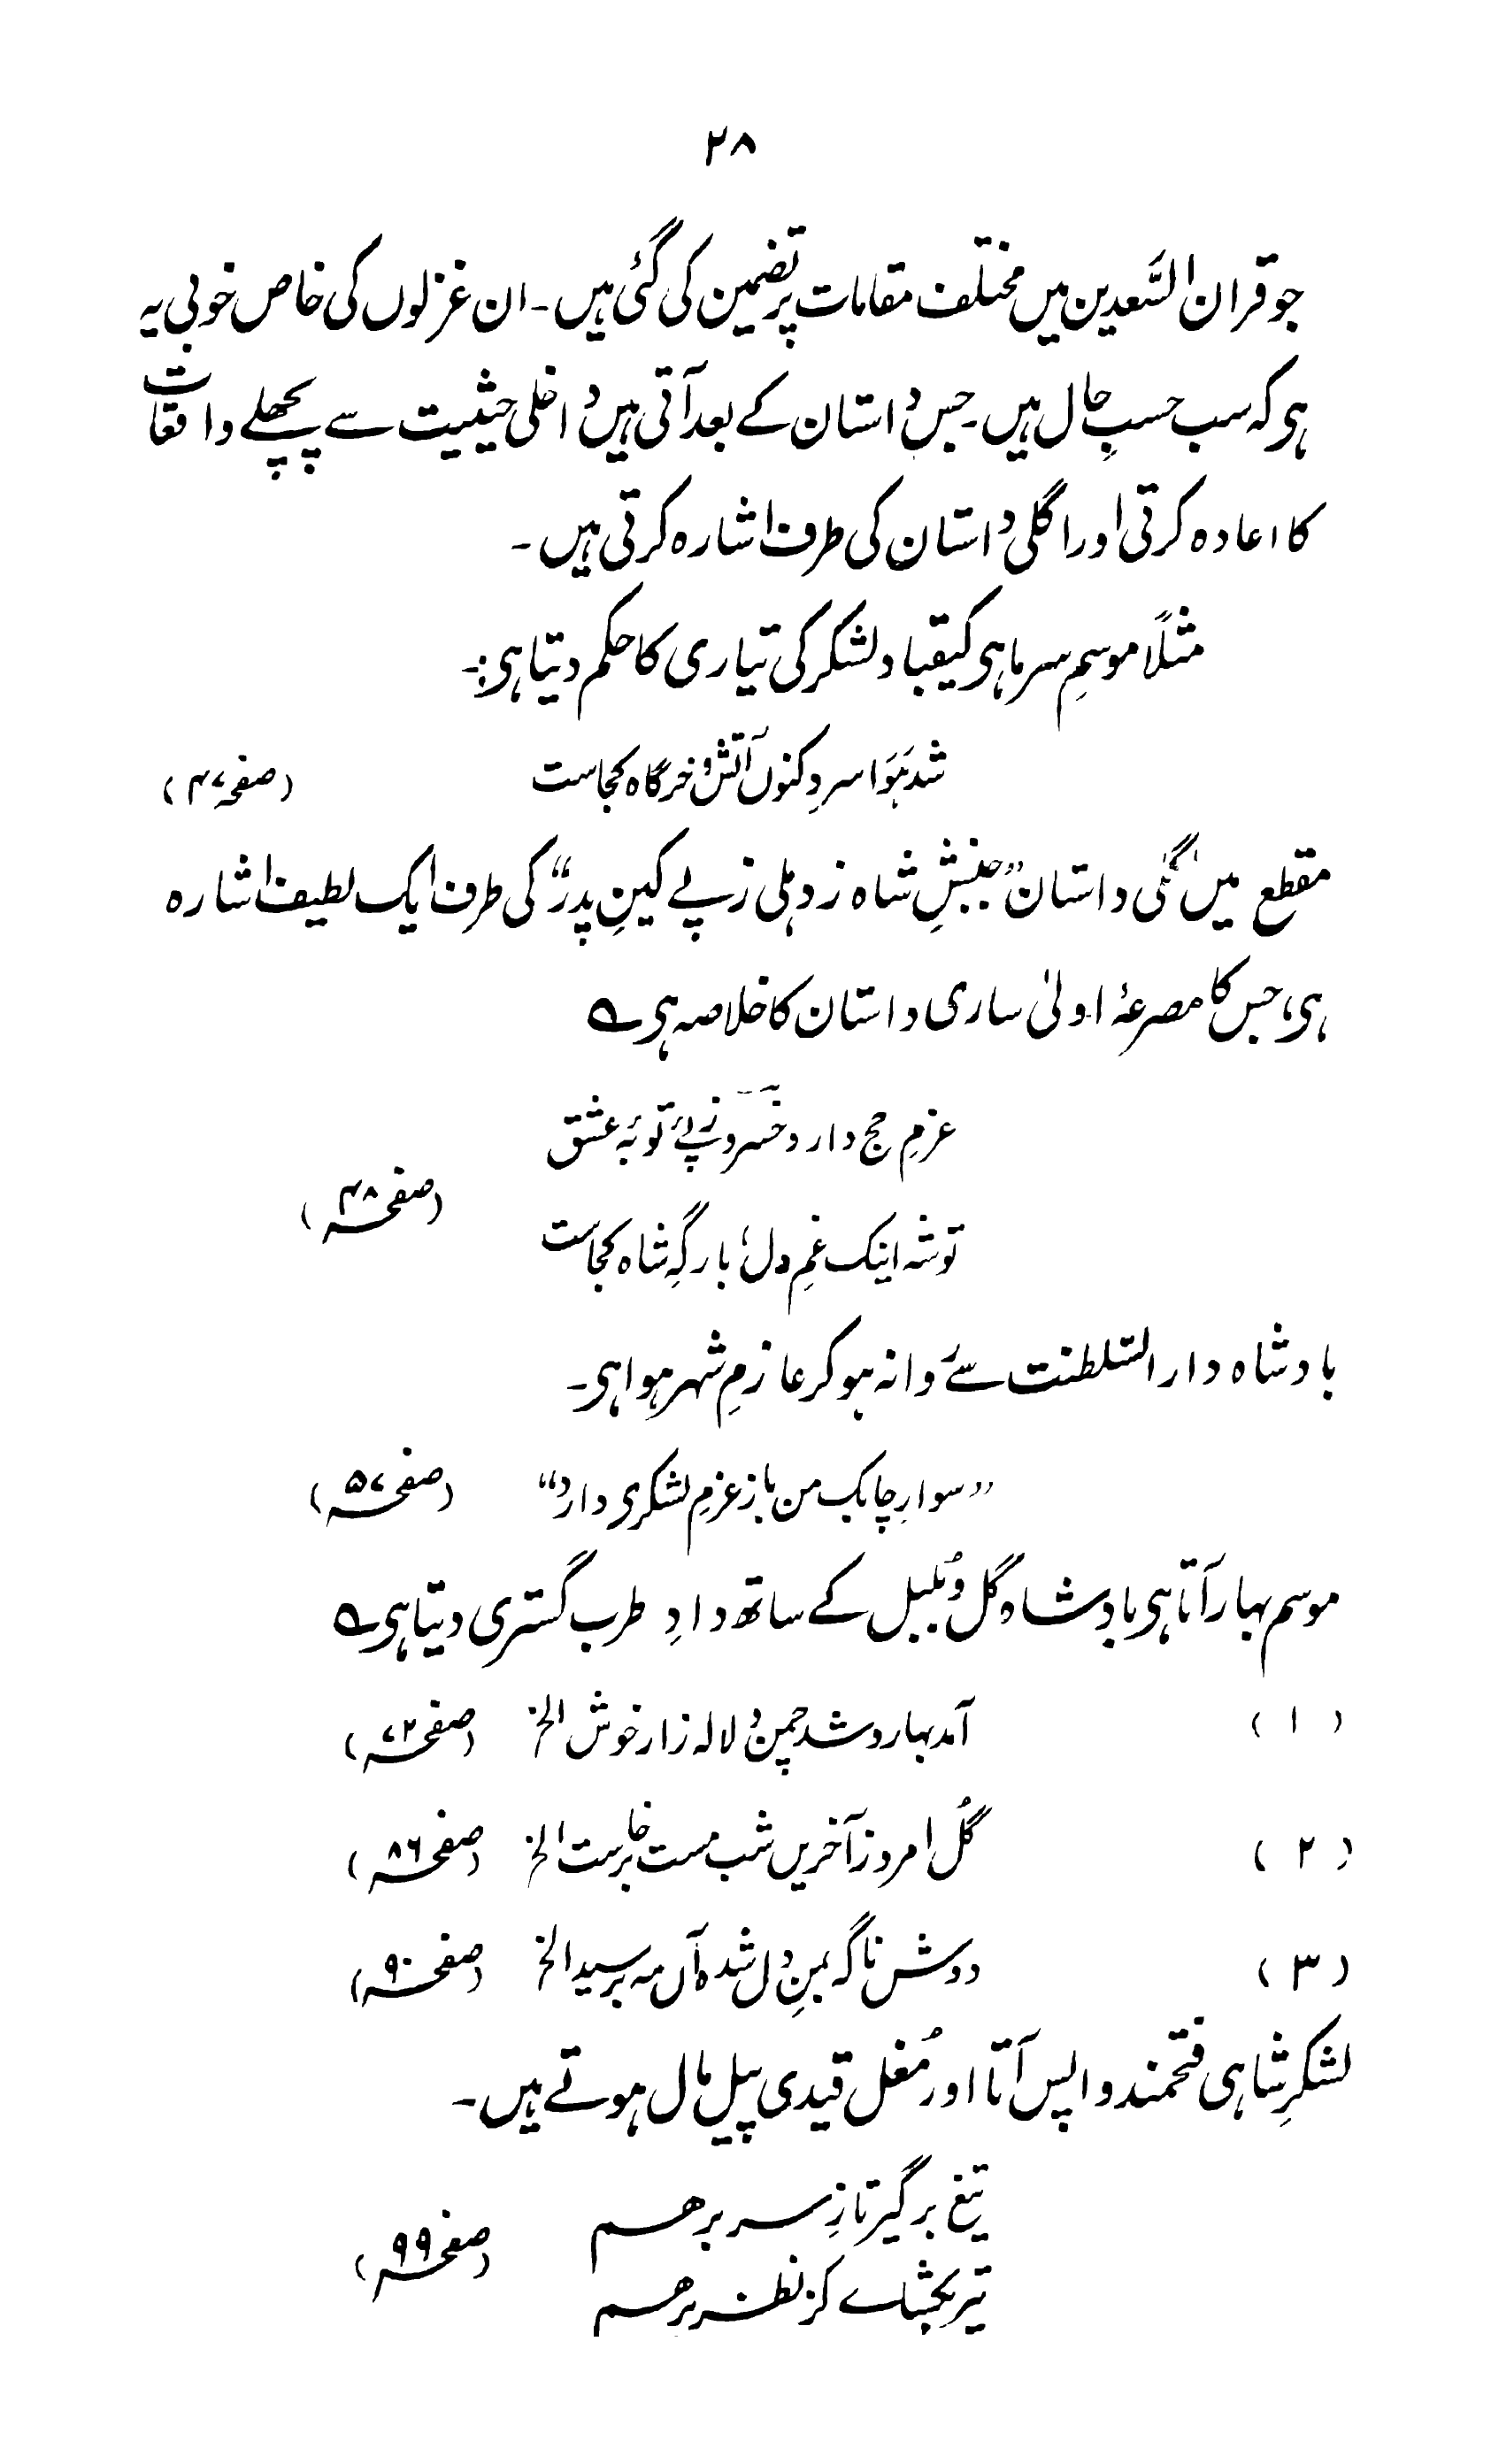 ۲۸
جو قران السَّعدین میں مختلف مقامات پر تضمین کی گئی ہیں ۔ ان غزلوں کی خاص خوبی یہ
ہی کہ سب حسبِ حال ہیں ۔ جس داستان کے بعد آتی ہیں داخلی حیثیت سے پچھلے واقعات
کا اعادہ کرتی اور اگلی داستان کی طرف اشارہ کرتی ہیں ۔
مثلاً موسمِ سرما ہی کیقباد لشکر کی تیاری کا حکم دیتا ہی :۔
شد ہَوا سرد کنوں آتش و خرگاہ کجاست (صفحہ ۴۷)
مقطع میں اگلی داستان ”جنبشِ شاہ ز دہلی ز پے کینِ پدر“ کی طرف ایک لطیف اشارہ
ہی، جس کا مصرعۂ اولیٰ ساری داستان کا خلاصہ ہی ؎
عزمِ حج دارد خسرو ز پئے توبۂ عشق
(صفحہ ۴۸)
توشہ اینک غمِ دل، بارگہِ شاہ کجاست
بادشاہ دار السّلطنت سے روانہ ہو کر عازمِ شہر ہوا ہی ۔
”سوارِ چابک من باز عزمِ لشکری دارد“ (صفحہ ۵۷)
موسم بہار آتا ہی بادشاہ گل و بُلبل کے ساتھ دادِ طرب گستری دیتا ہی ؎
(۱) آمد بہار و شد چمن و لالہ زار خوش الخ (صفحہ ۷۲)
(۲) گُل امروز آخریں شب مست خاست الخ (صفحہ ۸۶)
(۳) دوش ناگہ بمنِ دل شدہ آں مہ برسید الخ (صفحہ ۹۰)
لشکرِ شاہی فتحمند واپس آتا اور مُغل قیدی پیل مال ہوتے ہیں ۔
تیغ برگیر تا ز سر برهم
(صفحہ ۹۹)
تیر بکشاے کز نظر برهم